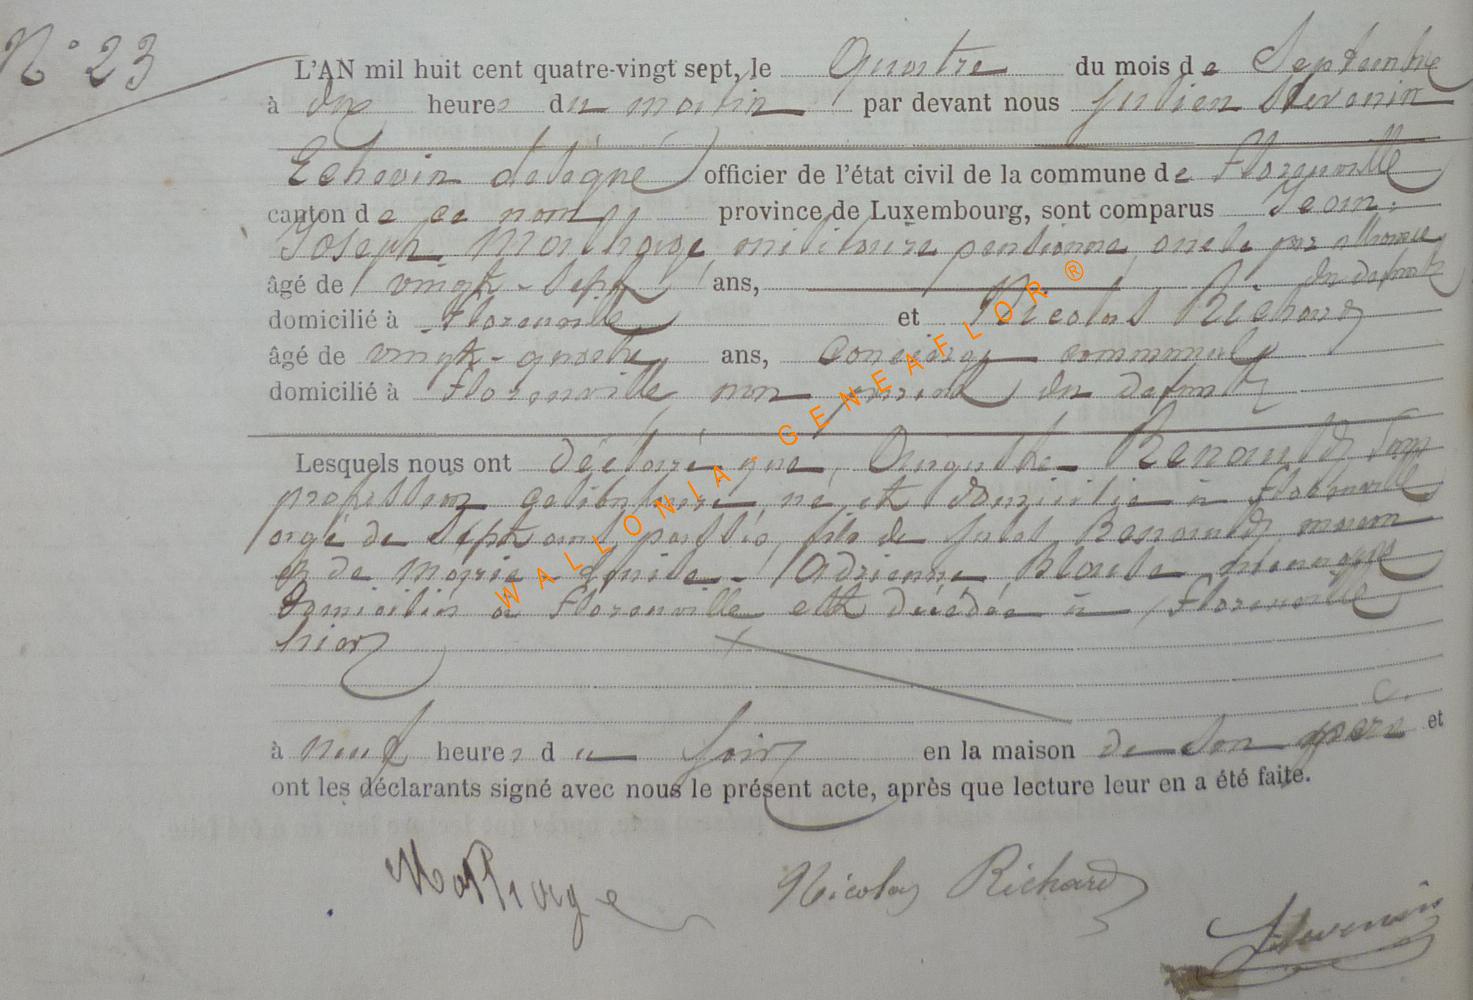 N° 23
L'AN mil huit cent quatre-vingt sept, le Quatre du mois de Septembre
à dix heures du matin par devant nous Julien Stevenin
Echevin délégué officier de l'état civil de la commune de Florenville
canton de ce nom province de Luxembourg, sont comparus Jean
Joseph Mathorge militaire pensionné oncle par alliance
du défunt
âgé de vingt-sept ans,
domicilié à Florenville et Nicolas Richard
âgé de vingt-quatre ans, Concierge communal
domicilié à Florenville non parent du défunt
Lesquels nous ont déclaré que Auguste Renauld sans
profession célibataire né et domicilié à Florenville
âgé de Sept ans passés, fils de Jules Renauld maçon
et de Marie-Louise-Adrienne ménagère
domiciliés à Florenville est décédé à Florenville
hier
à neuf heures du soir en la maison de son père et
ont les déclarants signé avec nous le présent acte, après que lecture leur en a été faite.
Mathorge Nicolas Richard
JStevenin
WALLONIA - GENEAFLOR ®